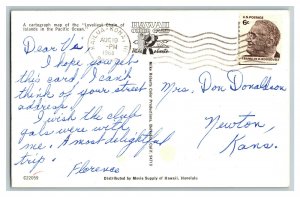 A cartograph map of the "Loveliest Chain of
Islands in the Pacific Ocean."
HAWAII
KAILUA-KONA
AUG 10
PM
1968
U.S. POSTAGE
6¢
FRANKLIN D. ROOSEVELT
Dear Va:
I hope you get
this card. I can't
think of your street
address.
I wish the club
gals were with
me. A most delightful
trip.
Florence
Mrs. Don Donaldson
Newton,
Kans.
C22059
Distributed by Movie Supply of Hawaii, Honolulu